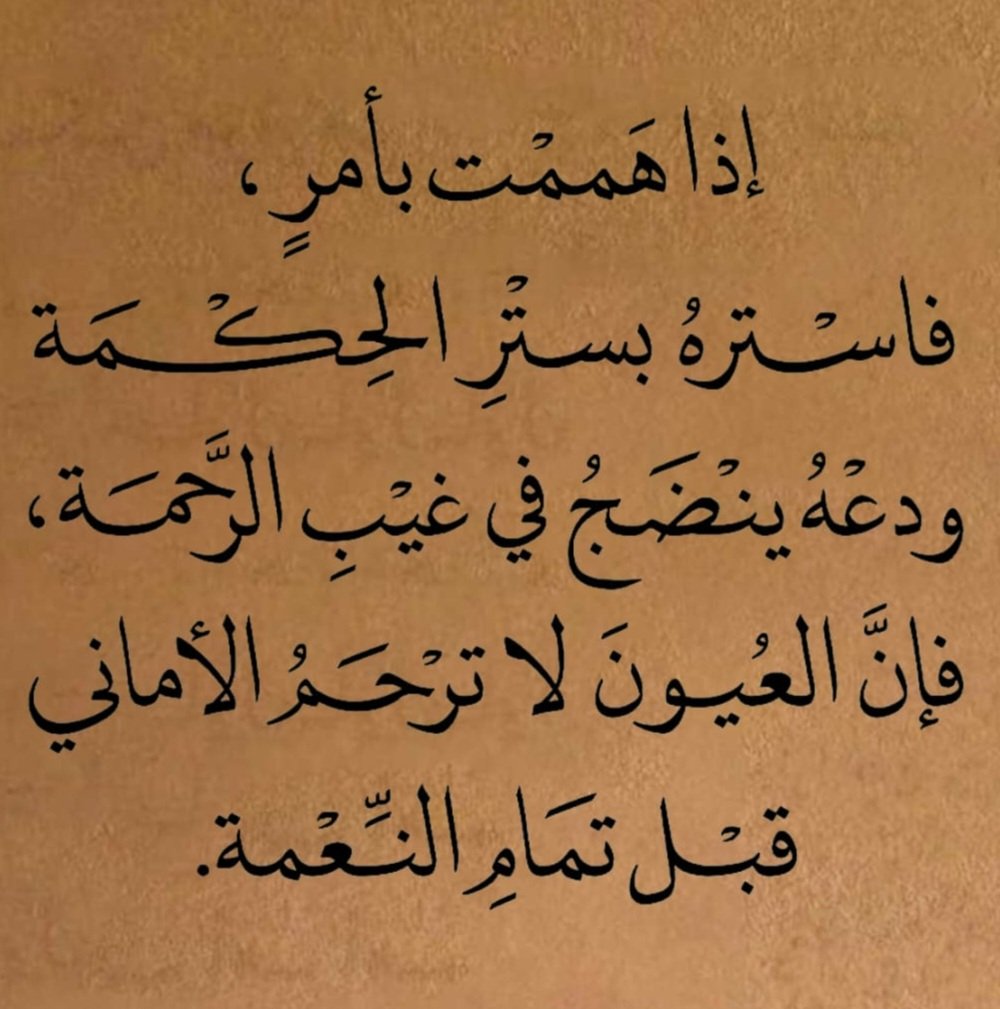 إذا هَممْت بأمرٍ ،
فاسْترهُ بستْرِ الحِكْمَة
ودعْهُ ينْضَجُ في غيْبِ الرَّحمَة،
فإنَّ العُيونَ لا ترْحَمُ الأماني
قبْل تمَامِ النِّعْمة.